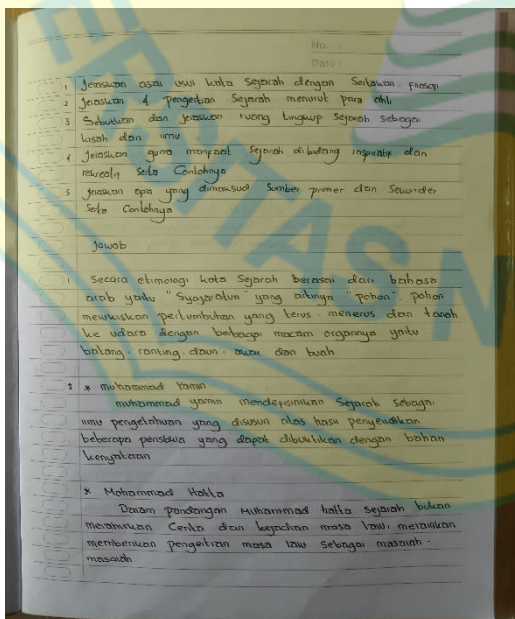 No. :
Date :
1 Jelaskan asal usul kata Sejarah dengan Sertakan Filosopi
2 Jelaskan 4 pengertian Sejarah menurut para ahli
3 Sebutkan dan jelaskan ruang lingkup Sejarah sebagai
kisah dan ilmu
4 Jelaskan guna manfaat Sejarah dibidang inspiratip dan
rekreatip Serta Contohnya
5 Jelaskan apa yang dimaksud Sumber primer dan Sekunder
Serta Contohnya
Jawab
1 Secara etimologi kata Sejarah berasal dari bahasa
arab yaitu "Syajaratun" yang artinya "pohon". pohon
melukiskan pertumbuhan yang terus-menerus dan tanah
ke udara dengan berbagai macam organnya yaitu.
batang. ranting. daun. akar. dan buah
2 * Muhammad Yamin
muhammad yamin mendefisinikan Sejarah sebagai
ilmu pengetahuan yang disusun atas hasil penyelidikan
beberapa peristiwa yang dapat dibuktikan dengan bahan
kenyataan
* Mohammad Hatta
Dalam pandangan Muhammad hatta sejarah bukan
melainkan Cerita dan kejadian masa lalu, melainkan
memberikan pengertian masa lalu Sebagai masalah-
masalah
ERSITAS N